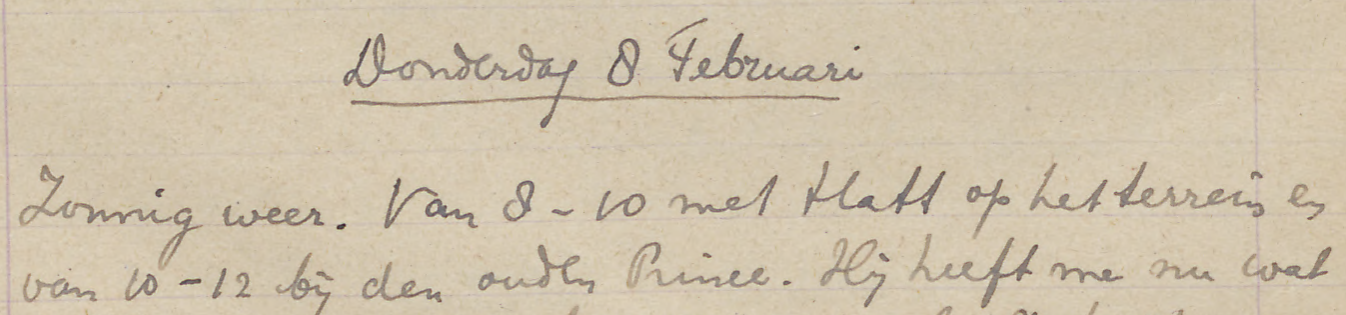 Donderdag 8 Februari
Zonnig weer. Van 8-10 met Hatt op het terrein en
van 10-12 bij den ouden Prince. Hij heeft me nu wat